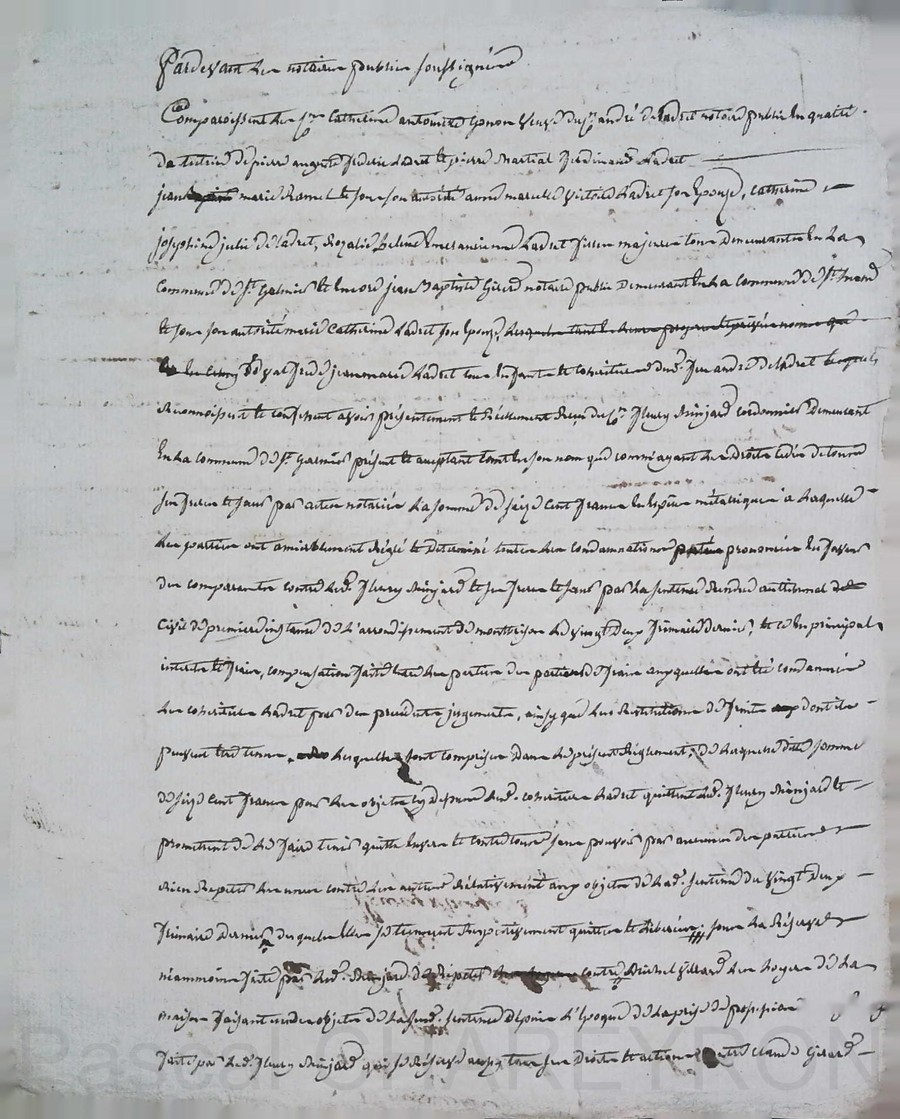 Pardevant les notaires publics soussignés
Comparoissent les Catherine antoinette veuve du sr andré deladret notaire public En qualité
de tutrice de pierre auguste federic Ladret et pierre Martial ferdinand Ladret
jean marie Ramel et sous son autorité anne marcelle victoire Ladret son Epouse, catherine
josephine julie de ladret, Rozalie helene Ladret filles majeures tous demeurants En La
Commune de St Galmier et encore jean Baptiste Girard notaire public demeurant En La commune de St
et sous son autorité marie Catherine Ladret son Epouse,
jean marie Ladret tous Enfants et cohéritiers dud. feu andré de Ladret lesquels
Reconnoissent et confessent avoir présentement et Réellement Reçu de Fleury cordonnier Demeurant
En La commune de St Galmier présent et acceptant tant En son nom que comme ayant les Droits cédés de tous
ses freres et sœurs par actes notariés La somme de seize cent francs En Espèce métallique à Laquelle
les parties ont amiablement Réglé et Determiné toutes les condamnations prononcées En faveur
des comparants contre Led. Fleury et ses freres et sœurs par La sentence Rendue au tribunal
Civil de premiere instance de L'arrondissement de montbrison Le vingt Deux frimaire dernier, et ce En principal
interets et frais, compensation faite des portions de frais auxquelles ont été condamnés
Les cohéritiers Ladret par des précédents jugements, ainsy que Les Restitutions de fruits dont ils
peuvent être tenus, Lesquelles sont comprises Dans Le présent Règlement, de Laquelle ditte somme
de seize cent francs pour les objets cy dessus Lesd. cohéritiers Ladret quittent Led. Fleury et
promettent de Le faire tenir quitte Envers et contre tous sans pouvoir par aucunes des parties
Rien Repeter Les unes contre les autres Relativement aux objets de Lad. sentence du vingt Deux
frimaire Dernier desquels Elles se tiennent Respectivement quittes et Liberées, sous La Réserve
néammoins faite par Led. de Répéter contre Michel Les Loyers de La
maison faisant un des objets de La sud. sentence depuis L'époque de La prise de possession
faite par Led. Fleury qui se Réserve aussy tous ses Droits et actions contre Claude Girard
Pascal CHAREYRON